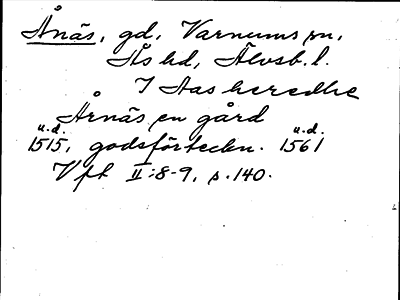 Ånäs, gd, Varnums sn,
Ås hd, Älvsb. l.
I Aas heredhe
Årnäs en gård
u.d. u.d.
1515, godsförteckn. 1561
Vft II:8-9, s. 140.